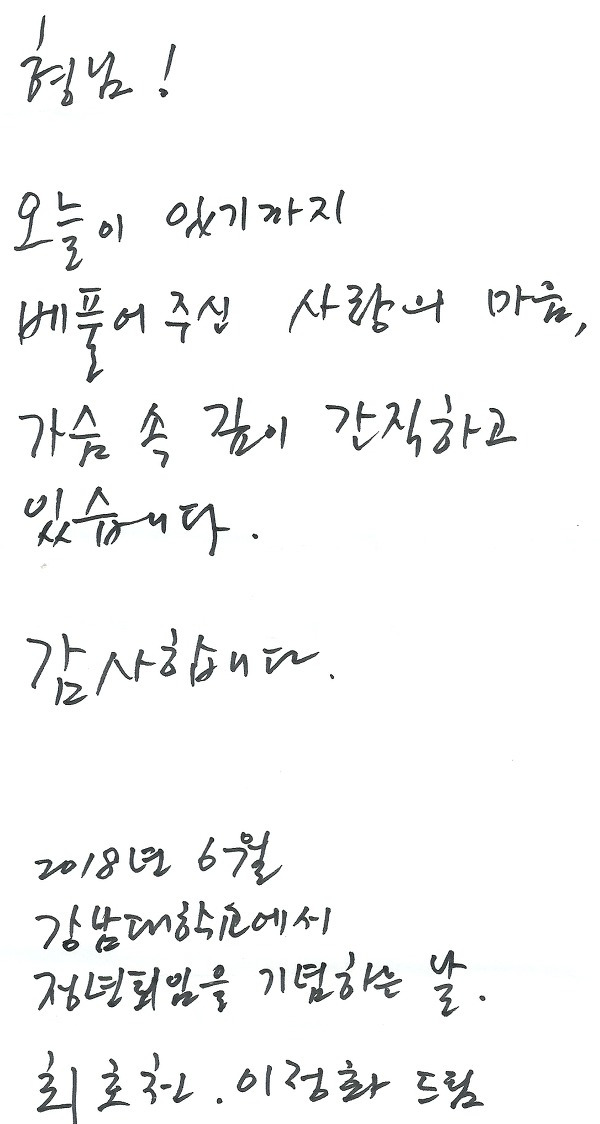 형님!
오늘이 있기까지
베풀어주신 사랑의 마음,
가슴 속 깊이 간직하고
있습니다.
감사합니다.
2018년 6월
강남대학교에서
정년퇴임을 기념하는 날.
최호천. 이정화 드림